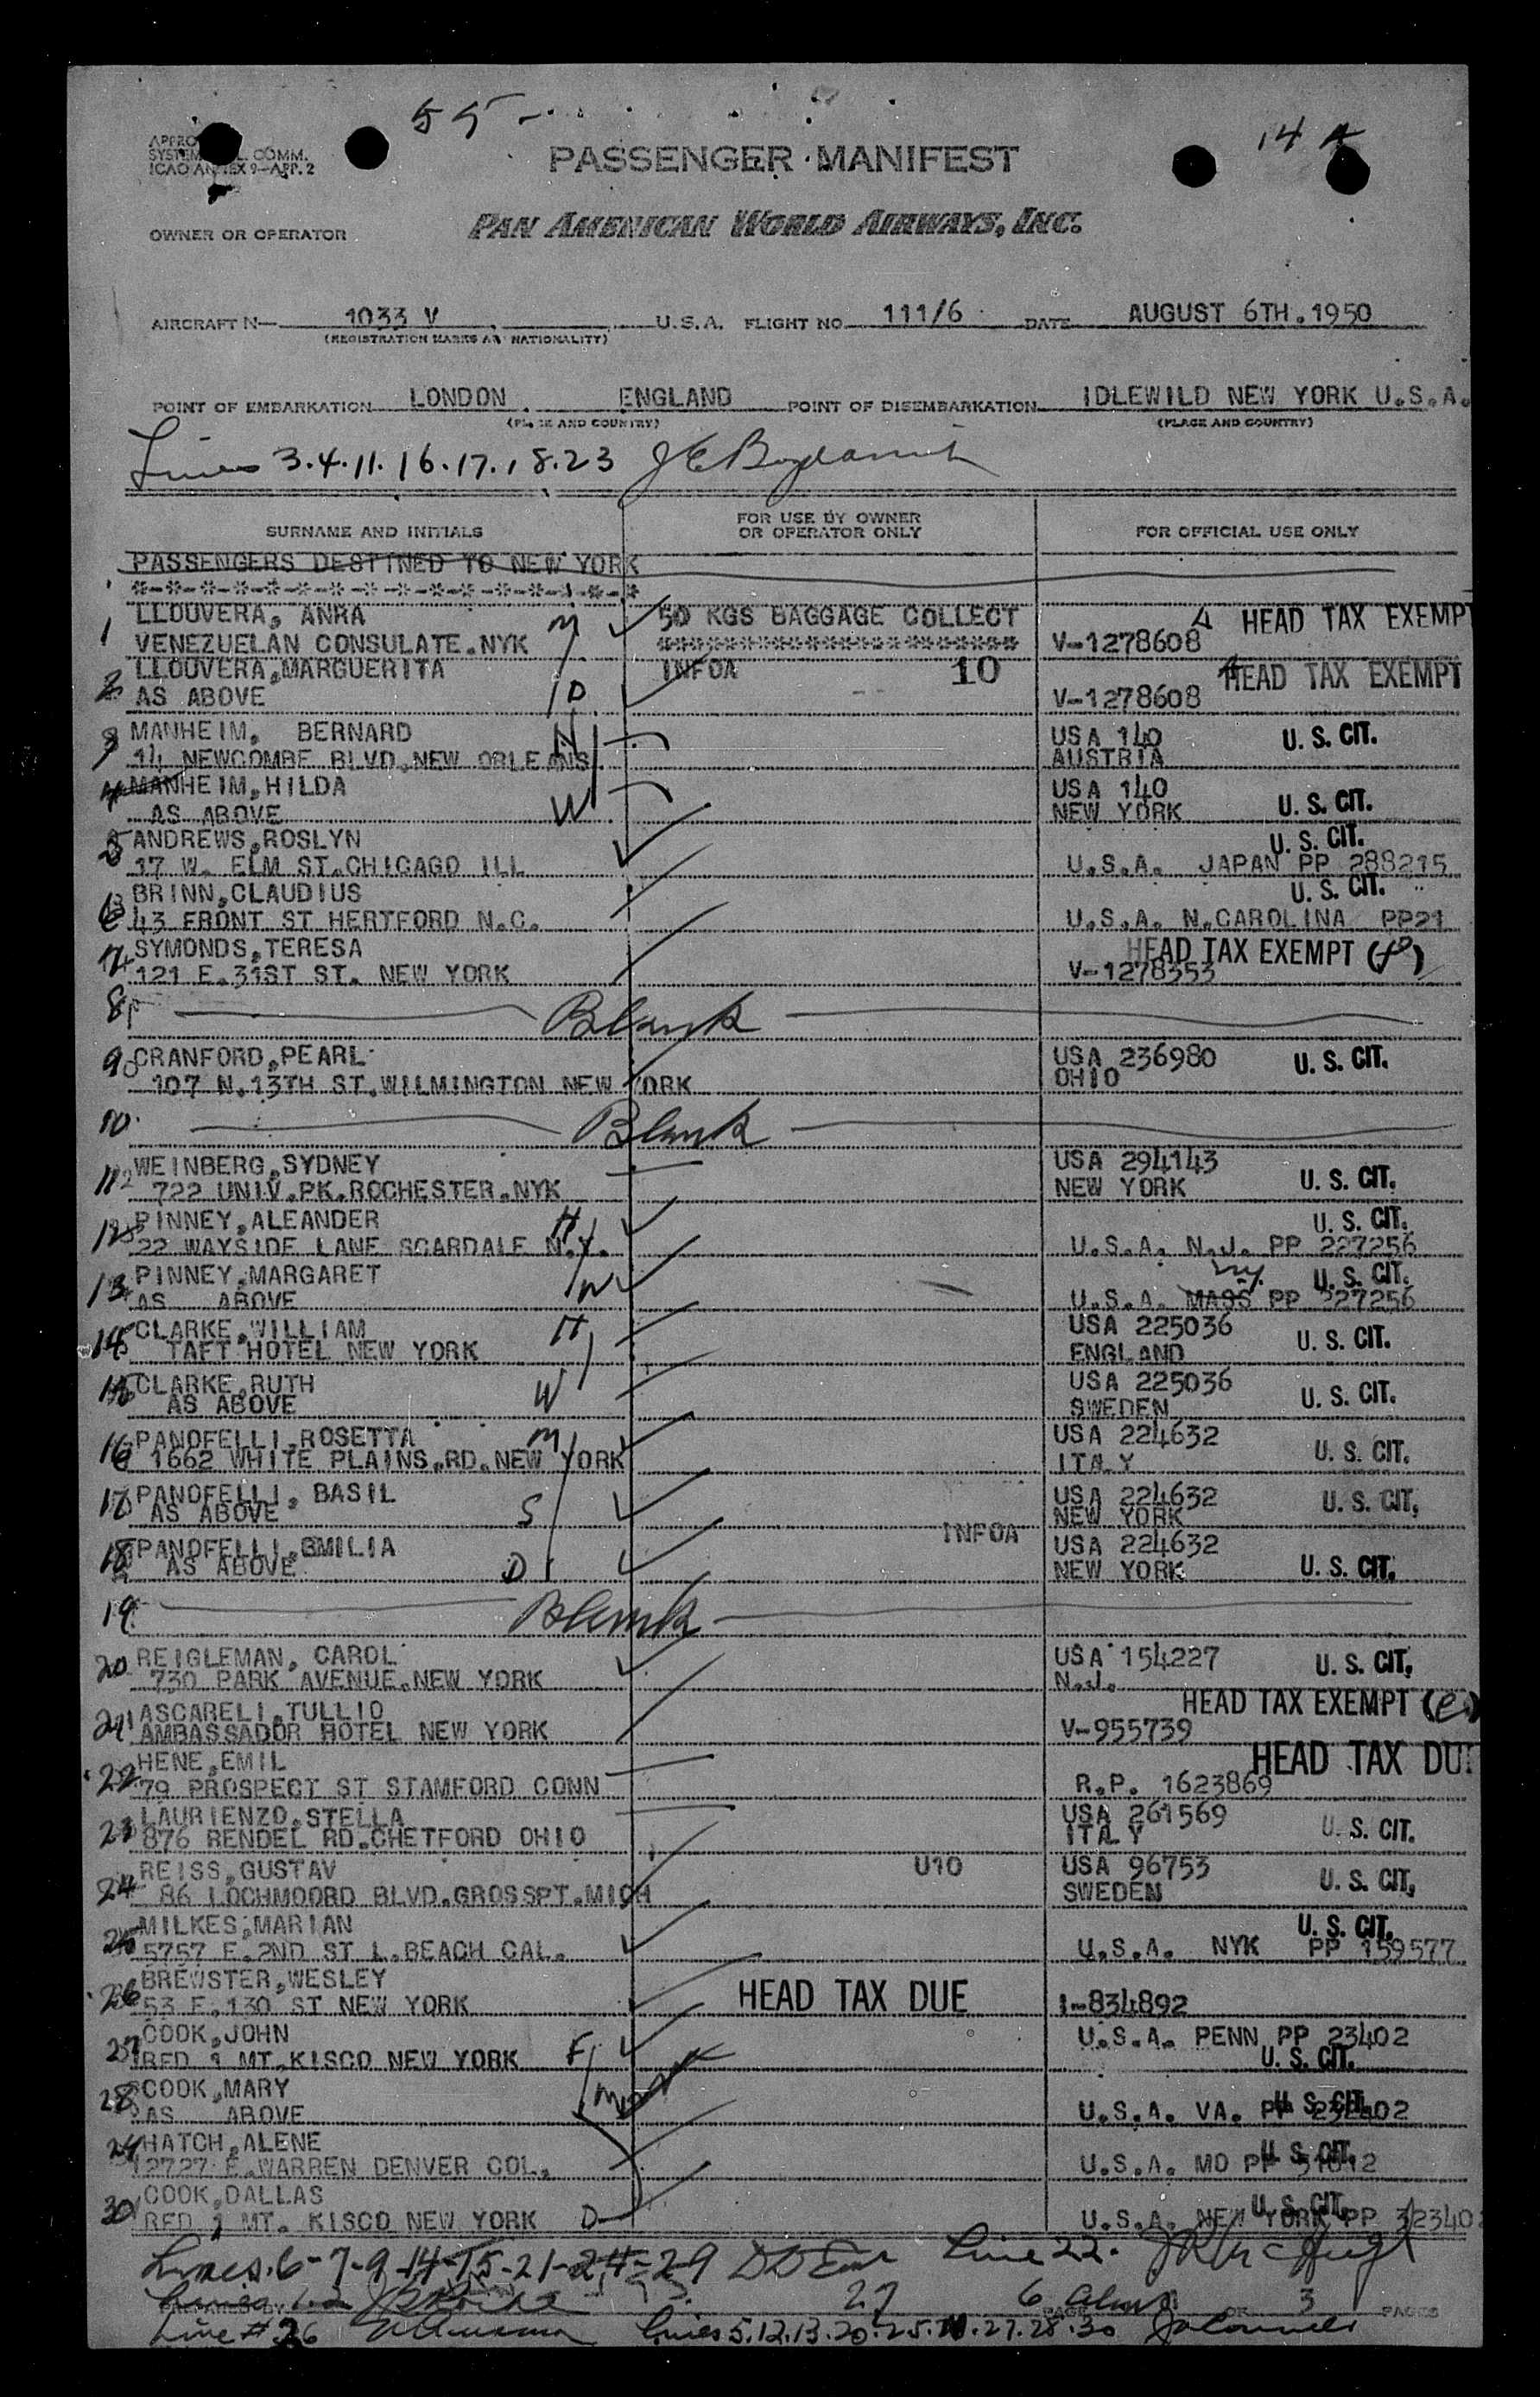 55-
14 A
APPRO
SYSTEM L. COMM.
ICAO ANNEX 9-APP. 2
PASSENGER MANIFEST
OWNER OR OPERATOR PAN AMERICAN WORLD AIRWAYS, INC.
AIRCRAFT N— 1033 V U.S.A. FLIGHT NO. 111/6 DATE AUGUST 6TH.1950
(REGISTRATION MARKS AND NATIONALITY)
POINT OF EMBARKATION LONDON ENGLAND POINT OF DISEMBARKATION IDLEWILD NEW YORK U.S.A.
(PLACE AND COUNTRY) (PLACE AND COUNTRY)
Lines 3.4.11.16.17.18.23
SURNAME AND INITIALS FOR USE BY OWNER OR OPERATOR ONLY FOR OFFICIAL USE ONLY
PASSENGERS DESTINED TO NEW YORK
*-*-*-*-*-*-*-*-*-*-*-*-*
1 LLOUVERA, ANRA M 50 KGS BAGGAGE COLLECT HEAD TAX EXEMPT
VENEZUELAN CONSULATE.NYK ******************* V-1278608
2 LLOUVERA,MARGUERITA INFOA 10 HEAD TAX EXEMPT
AS ABOVE D V-1278608
3 MANHEIM, BERNARD H USA 140 U. S. CIT.
14 NEWCOMBE BLVD.NEW ORLEANS AUSTRIA
4 MANHEIM,HILDA USA 140 U. S. CIT.
AS ABOVE W NEW YORK
5 ANDREWS,ROSLYN U. S. CIT.
17 W. ELM ST.CHICAGO ILL U.S.A. JAPAN PP 288215
6 BRINN,CLAUDIUS U. S. CIT.
43 FRONT ST HERTFORD N.C. U.S.A. N.CAROLINA PP21
7 SYMONDS,TERESA HEAD TAX EXEMPT (f)
121 E.31ST ST. NEW YORK V-1278353
8 Blank
9 CRANFORD,PEARL USA 236980 U. S. CIT.
107 N.13TH ST.WILMINGTON NEW YORK OHIO
10 Blank
11 WEINBERG,SYDNEY USA 294143
722 UNIV.PK.ROCHESTER.NYK NEW YORK U. S. CIT.
12 PINNEY,ALEANDER H U. S. CIT.
22 WAYSIDE LANE SCARDALE N.Y. U.S.A. N.J. PP 227256
13 PINNEY,MARGARET W ny. U. S. CIT.
AS ABOVE U.S.A. MASS PP 227256
14 CLARKE,WILLIAM H USA 225036 U. S. CIT.
TAFT HOTEL NEW YORK ENGLAND
15 CLARKE,RUTH W USA 225036 U. S. CIT.
AS ABOVE SWEDEN
16 PANOFELLI,ROSETTA M USA 224632 U. S. CIT.
1662 WHITE PLAINS.RD.NEW YORK ITALY
17 PANOFELLI, BASIL S USA 224632 U. S. CIT.
AS ABOVE NEW YORK
INFOA
18 PANOFELLI,EMILIA D USA 224632
AS ABOVE NEW YORK U. S. CIT.
19 Blank
20 REIGLEMAN, CAROL USA 154227 U. S. CIT.
730 PARK AVENUE.NEW YORK N.J.
21 ASCARELI,TULLIO HEAD TAX EXEMPT (e)
AMBASSADOR HOTEL NEW YORK V-955739
22 HENE,EMIL HEAD TAX DUE
79 PROSPECT ST STAMFORD CONN R.P. 1623869
23 LAURIENZO,STELLA USA 261569 U. S. CIT.
876 RENDEL RD.CHETFORD OHIO ITALY
24 REISS,GUSTAV U10 USA 96753 U. S. CIT.
86 LOCHMOORD BLVD.GROSSPT.MICH SWEDEN
25 MILKES,MARIAN U. S. CIT.
5757 E.2ND ST L.BEACH CAL. U.S.A. NYK PP 159577
26 BREWSTER,WESLEY HEAD TAX DUE
53 E.130 ST NEW YORK I-834892
27 COOK,JOHN F U.S.A. PENN PP 23402
RED 1 MT.KISCO NEW YORK U. S. CIT.
28 COOK,MARY M U. S. CIT.
AS ABOVE U.S.A. VA. PP 232402
29 HATCH,ALENE U. S. CIT.
2727 E.WARREN DENVER COL. U.S.A. MO PP
30 COOK,DALLAS U. S. CIT.
RED 1 MT. KISCO NEW YORK D U.S.A. NEW YORK PP 323402
Lines.6-7-9-14-15-21-24-29 Line 22.
Lines 1.2 27 6 PAGE OF 3 PAGES
Line # 26 Lines 5.12.13.20.25.27.28.30